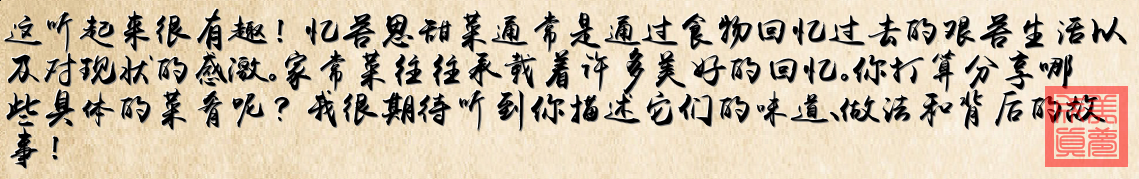 这听起来很有趣！忆苦思甜菜通常是通过食物回忆过去的艰苦生活以
及对现状的感激。家常菜往往承载着许多美好的回忆。你打算分享哪
些具体的菜肴呢？我很期待听到你描述它们的味道、做法和背后的故
事！